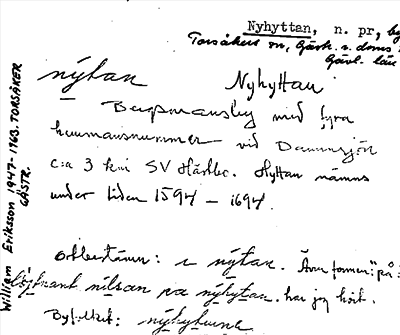 Nyhyttan, n. pr, by
Torsåkers sn, Gästr. v. doms.
Gävl. län
nýtan Nyhyttan
Bergsmansby med fyra
hemmansnummer vid Dammsjön
c:a 3 km SV Hästbo. Hyttan nämns
under tiden 1594 – 1694.
i nýtan. Även formen på
nilsan pa nýhýtan. har jag hört.
Byfolket: nýhýtarna
William Eriksson 1947-1963. TORSÅKER
GÄSTR.